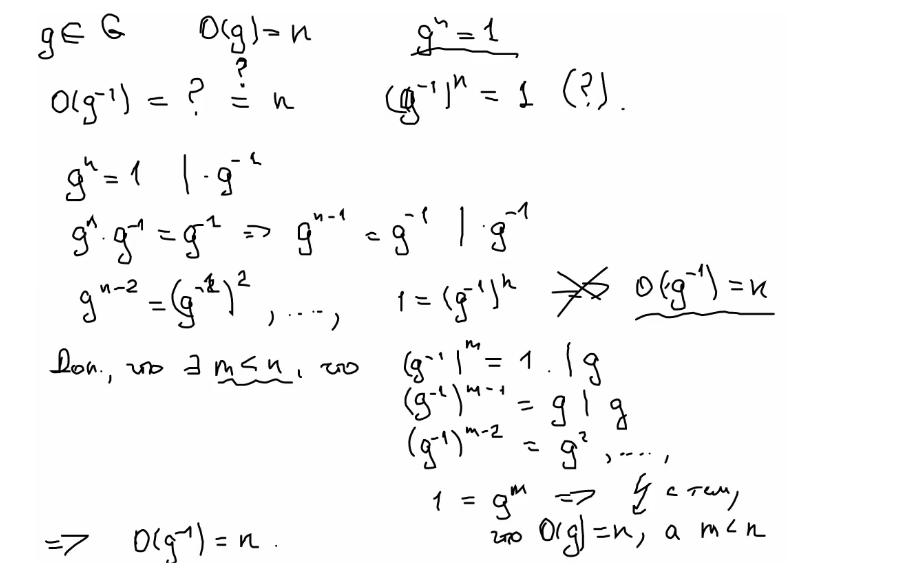 g ∈ G O(g) = n gⁿ = 1
O(g⁻¹) = ? ≟ n (g⁻¹)ⁿ = 1 (?).
gⁿ = 1 | · g⁻¹
gⁿ · g⁻¹ = g⁻¹ => gⁿ⁻¹ = g⁻¹ | · g⁻¹
gⁿ⁻² = (g⁻¹)², ...., 1 = (g⁻¹)ⁿ ⇏ O(g⁻¹) = n
Доп., что ∃ m < n, что (g⁻¹)ᵐ = 1 . | g
(g⁻¹)ᵐ⁻¹ = g | g
(g⁻¹)ᵐ⁻² = g², ....,
1 = gᵐ => ↯ с тем,
что O(g) = n, а m < n
=> O(g⁻¹) = n .